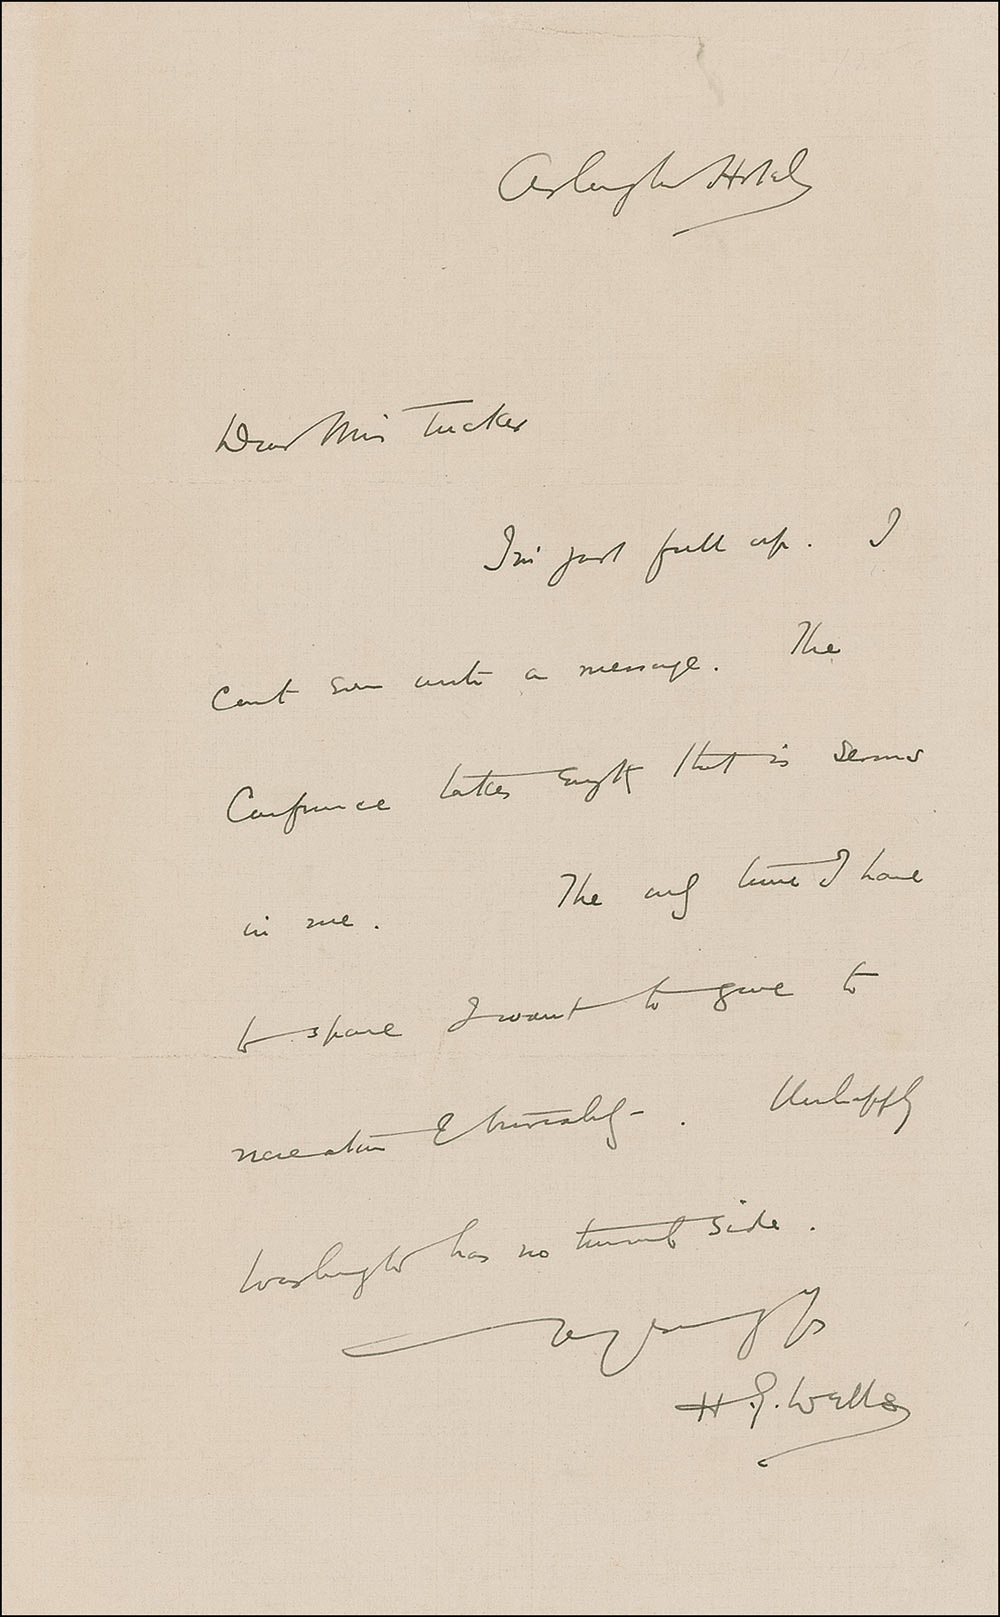 Arlington Hotel
Dear Miss Tucker
I'm just full up. I
cant even write a message. The
Conference takes that is serious
in me. The only time I have
to spare I want to give to
recreation & triviality. Unhappily
Washington has no side.
H. G. Wells